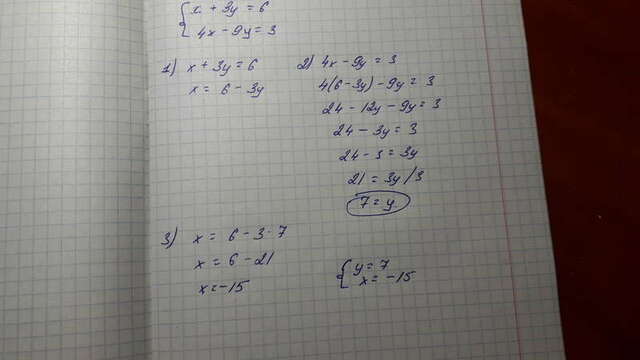 { x + 3y = 6
4x - 9y = 3
1) x + 3y = 6
x = 6 - 3y
2) 4x - 9y = 3
4(6 - 3y) - 9y = 3
24 - 12y - 9y = 3
24 - 3y = 3
24 - 3 = 3y
21 = 3y /3
7 = y
3) x = 6 - 3 · 7
x = 6 - 21
x = -15
{ y = 7
x = -15